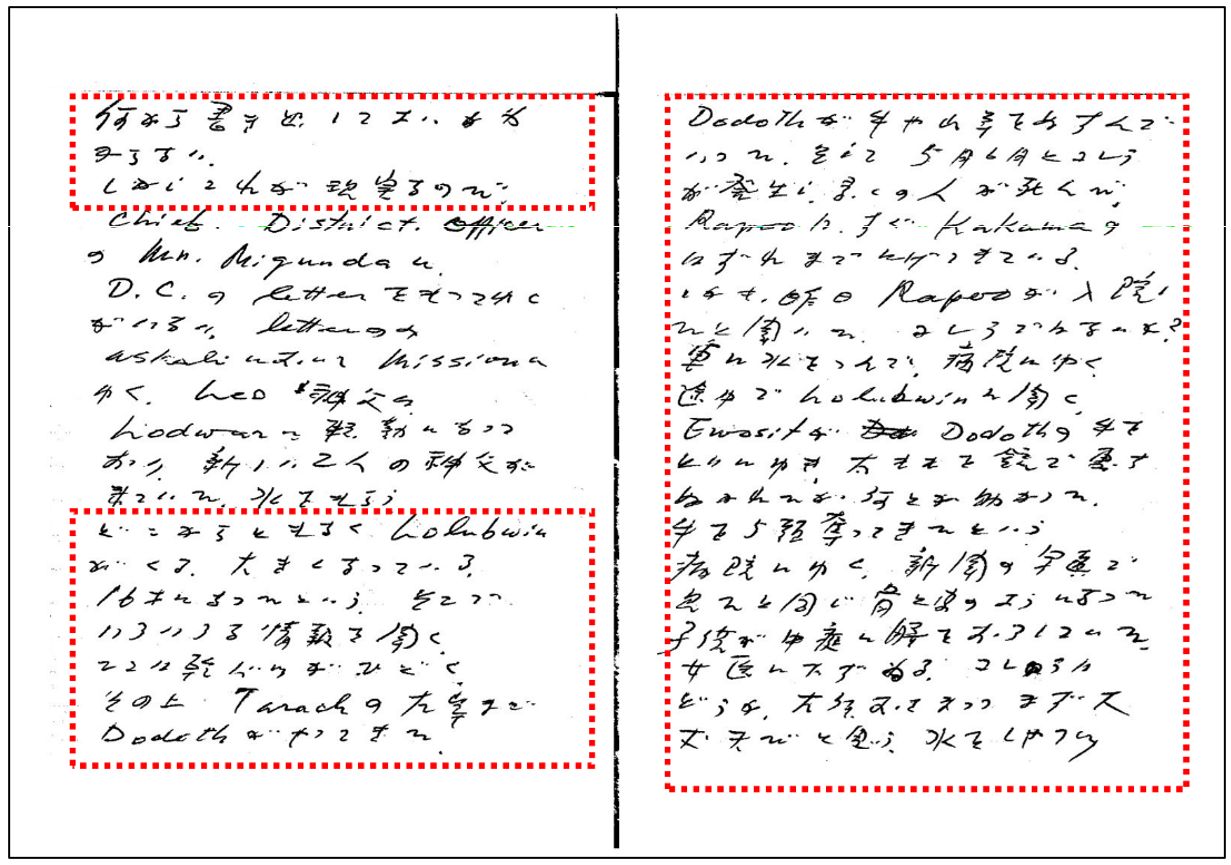 何から書き出していいか分
からない。
しかしこれが現実なので、
Chief. District. Officer
の Mr. Migunda に
D.C. の letter をもってゆく
がいない。letter のみ
askari にたのみ Mission に
ゆく。Leo 神父は
Lodwar に転勤になって
おり、新しい2人の神父が
来ていた。水をもらう
どこからともなく Lolubwin
がくる。大きくなっている。
16才になったという。そこで
いろいろな情報を聞く
ここは乾ばつがひどく
その上 Tarach の大聖まで
Dodoth がやってきた。
Dodoth が 牛やロ羊をぬすんで
いった。そして 5月6月とコレラ
が発生し 多くの人が死んだ。
Rapoo は、すぐ Kakuma の
はずれまでにげてきている。
しかも、昨日 Rapoo が入院し
たと聞いた。コレラでなるいか?
車に水をつんで、病院にゆく
途中で Lolubwin に聞く
Ewosit が Dodoth の牛を
とりにゆき 太ももを銃で重す
ぬかれたが 何とか助かった。
牛を5頭奪ってきたという
病院にゆく、新聞の写真で
見たと同じ骨と皮のようになった
子供が中庭に腰をおろしていた。
女医に大す ある。コレラは
どうか。大分 おさまって まず大
丈夫だと思う。水を